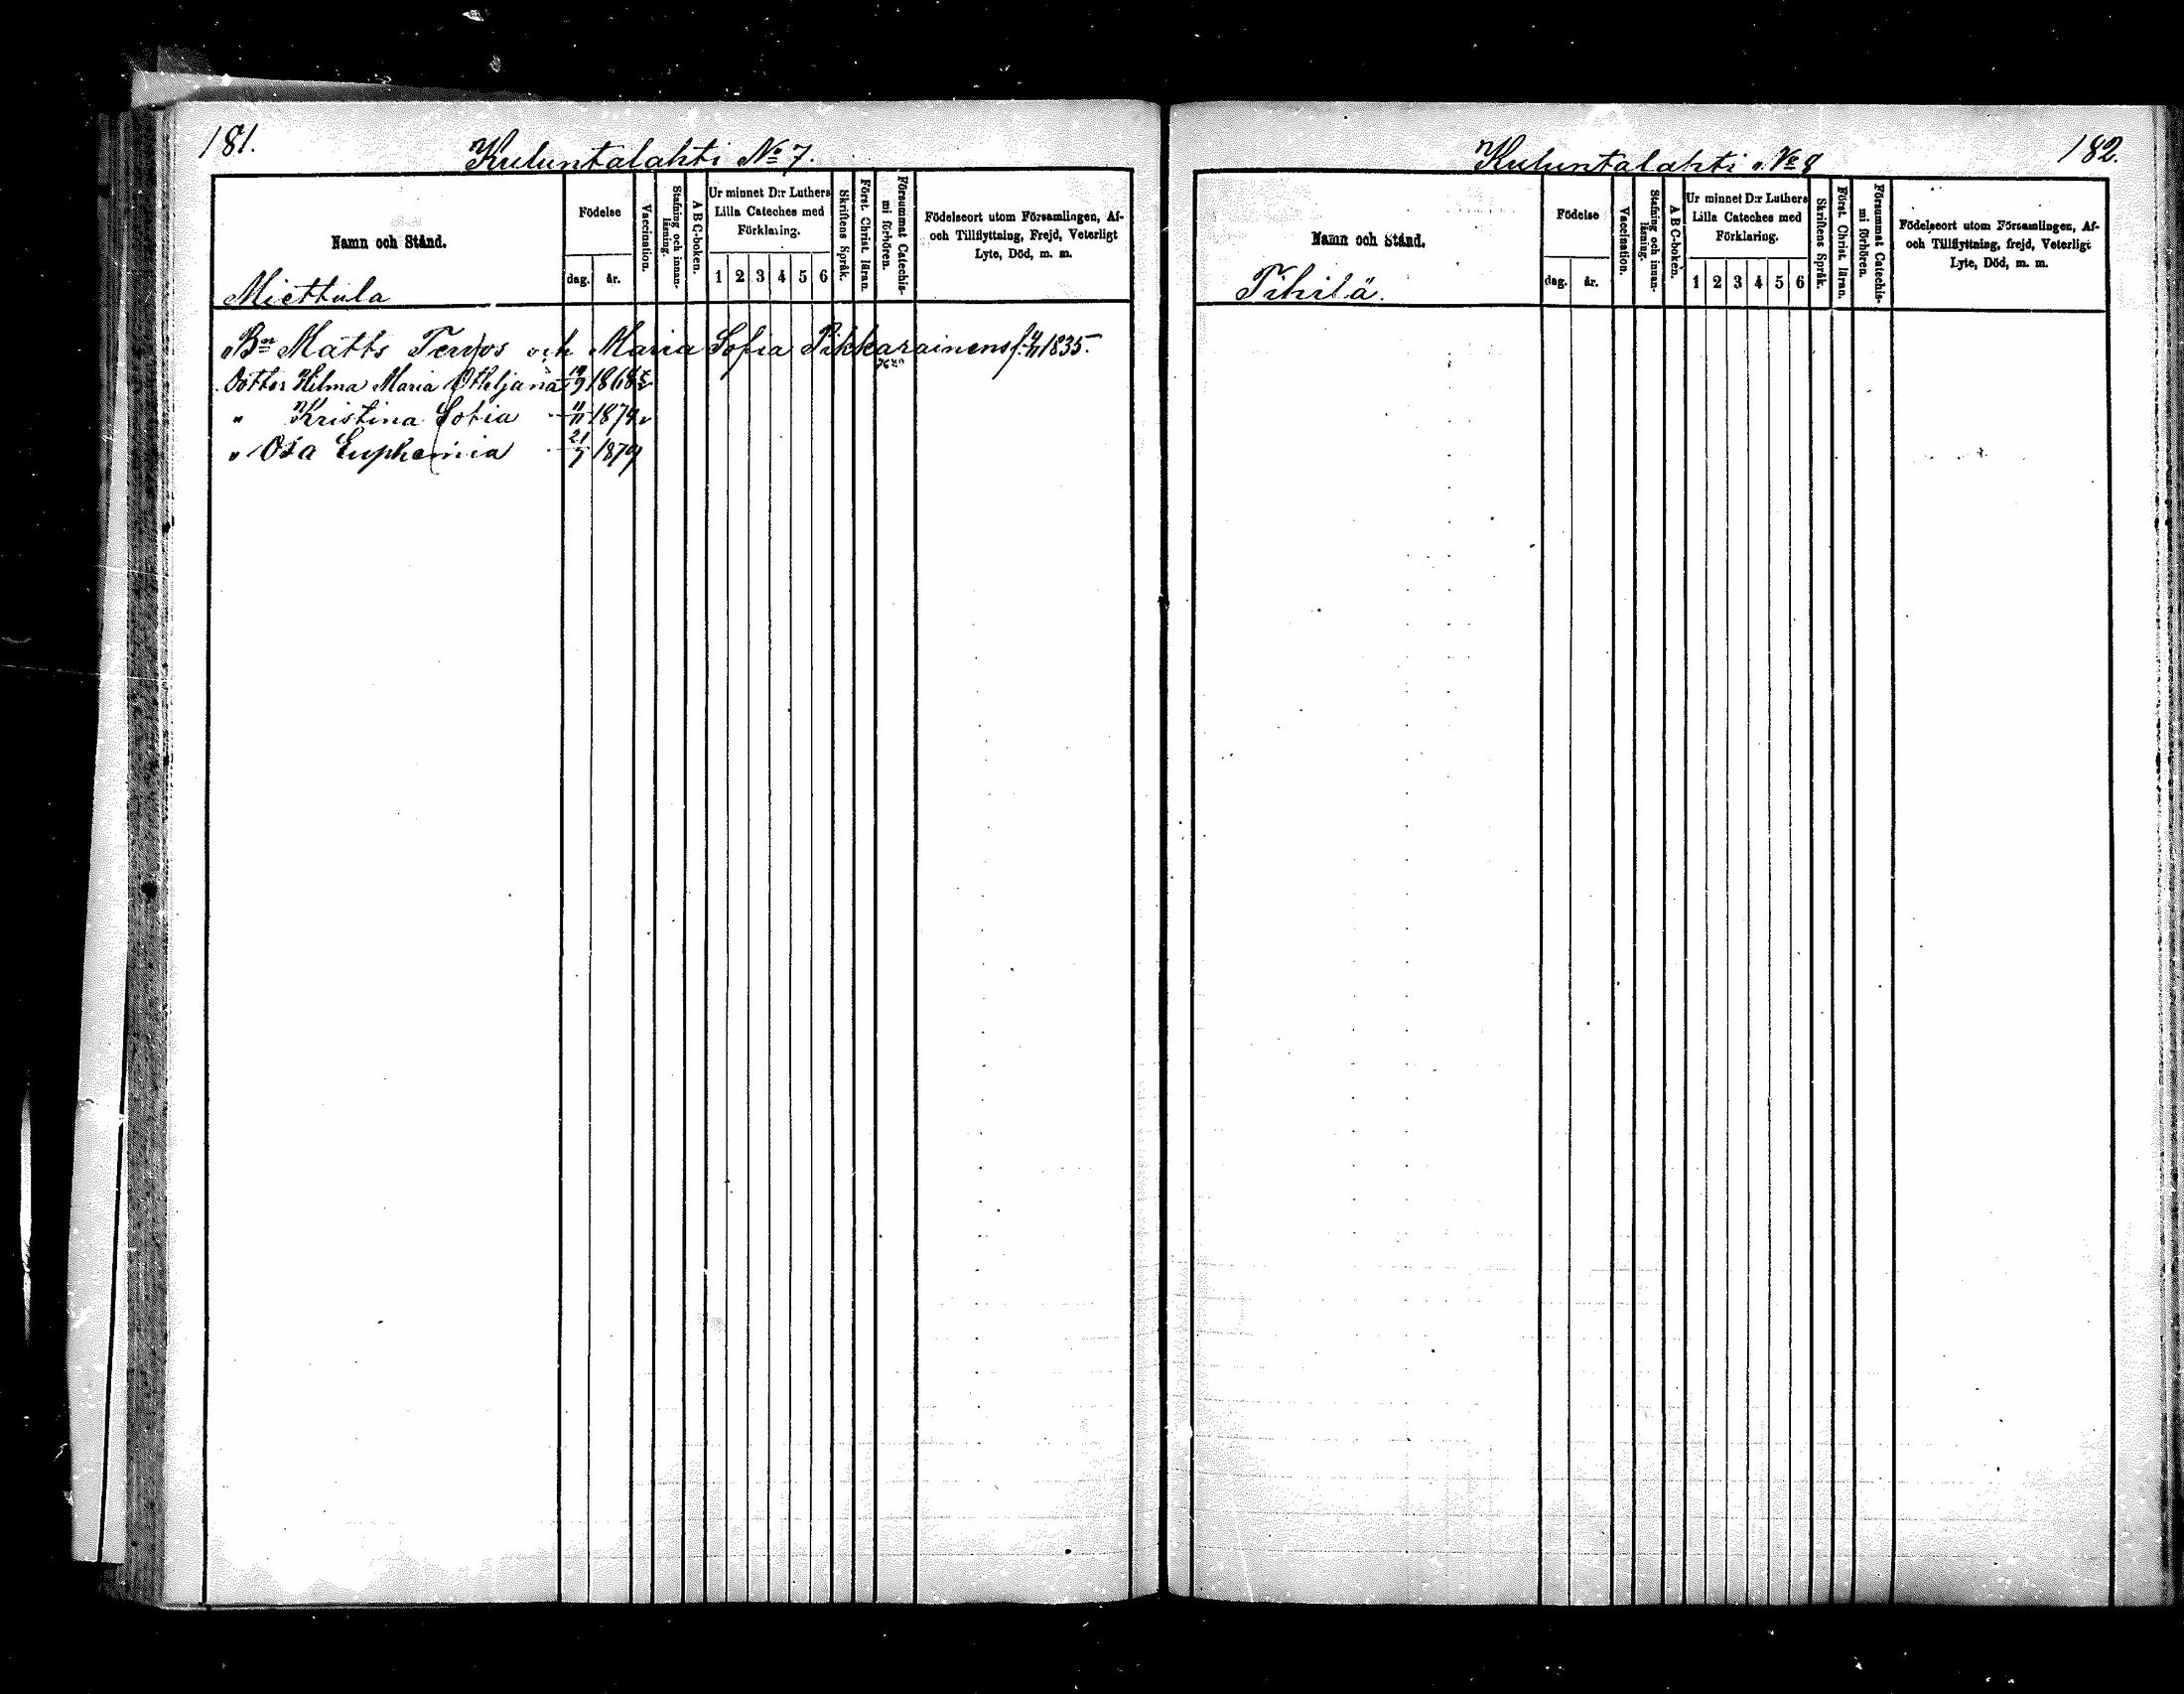 181.
Kuluntalahti No 7.
Namn och Stånd.
Födelse
dag.
år.
Vaccination.
Stafning och innan-
läsning.
A B C-boken.
Ur minnet D:r Luthers
Lilla Cateches med
Förklaring.
1 2 3 4 5 6
Skriftens Språk.
Först. Christ. läran.
Försummat Catechis-
mi förhören.
Födelseort utom Församlingen, Af-
och Tillflyttning, Frejd, Veterligt
Lyte, Död, m. m.
Miettula
Bn Matts Tervos och Maria Sofia Pikkarainens f. 1835.
Dotter Hilma Maria 19/9 1868 v
" Kristina Sofia 11/11 1874 v
" Osa Euphemia 21/7 1879
182.
Kuluntalahti No 8
Namn och Stånd.
Födelse
dag.
år.
Vaccination.
Stafning och innan-
läsning.
A B C-boken.
Ur minnet D:r Luthers
Lilla Cateches med
Förklaring.
1 2 3 4 5 6
Skriftens Språk.
Först. Christ. läran.
Försummat Catechis-
mi förhören.
Födelseort utom Församlingen, Af-
och Tillflyttning, frejd, Veterligt
Lyte, Död, m. m.
Tihilä.